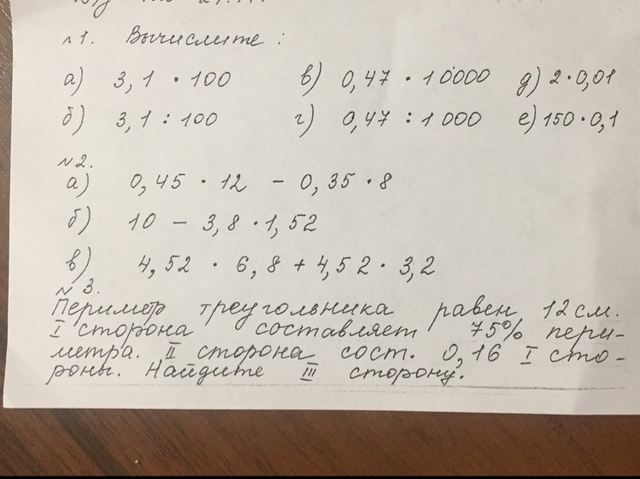 №1. Вычислите:
а) 3,1 · 100 в) 0,47 · 10000 д) 2·0,01
б) 3,1 : 100 г) 0,47 : 1000 е) 150·0,1
№2.
а) 0,45 · 12 - 0,35 · 8
б) 10 - 3,8 · 1,52
в) 4,52 · 6,8 + 4,52 · 3,2
№3.
треугольника равен 12 см.
I сторона составляет 75% пери-
метра. II сторона сост. 0,16 I сто-
роны. Найдите III сторону.